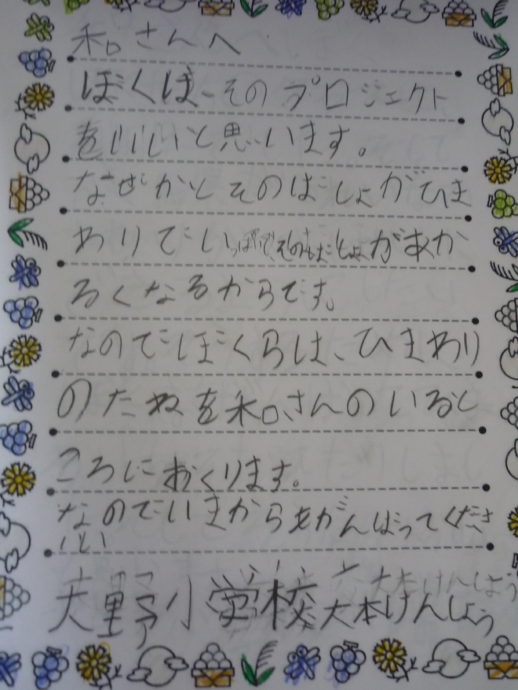 和さんへ
ぼくは、そのプロジェクト
をいいと思います。
なぜかとそのばしょがひま
わりでいっぱいで、そのばしょがあか
るくなるからです。
なのでぼくらは、ひまわり
のたねを和さんのいると
ころにおくります。
なのでいまからもがんばってくださ
い
大野小学校大本けんしょう